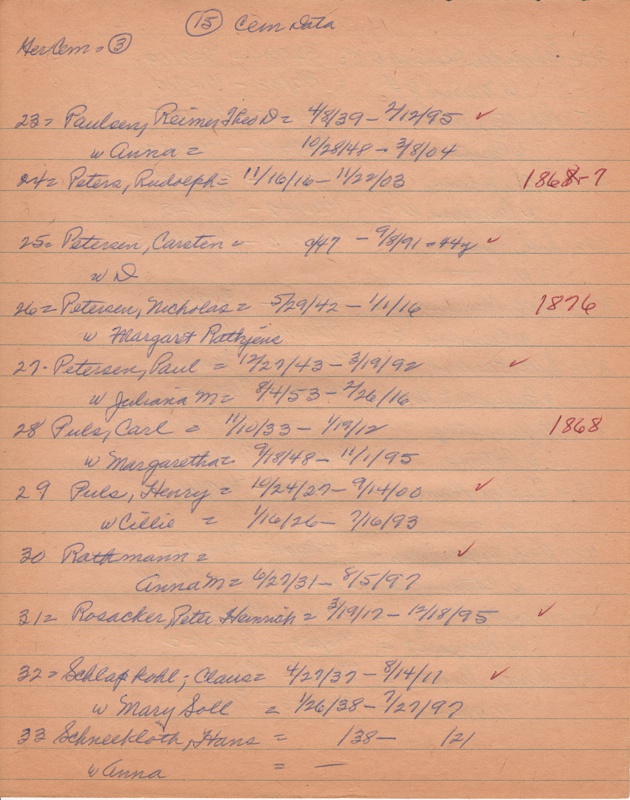 15 Cem Data
Her Cem = 3
23= Paulsen, Reimer, Theo D = 4/8/39 - 2/12/95 ✓
w Anna = 10/28/48 - 3/8/04
24= Peters, Rudolph = 11/16/16 - 11/22/03 1868-7
25= Petersen, Carsten = 9/47 - 9/8/91 = 44y ✓
w D
26= Petersen, Nicholas = 5/29/42 - 1/1/16 1876
w Margart Rathjene
27- Petersen, Paul = 12/27/43 - 3/19/92 ✓
w Juliana M = 8/4/53 - 2/26/16
28 Puls, Carl = 11/10/33 - 1/19/12 1868
w Margaretha = 9/18/48 - 11/1/95
29 Puls, Henry = 10/24/27 - 9/14/00 ✓
w Cillie = 1/16/26 - 7/16/93
30 Rathmann = ✓
Anna M = 6/27/31 - 8/5/97
31= Rosacker, Peter Heinrich = 3/19/17 - 12/18/95 ✓
32= Schlapkohl, Claus = 4/27/37 - 8/14/11 ✓
w Mary Soll = 1/26/38 - 7/27/97
33 Schneekloth, Hans = /38 - /21
w Anna = —